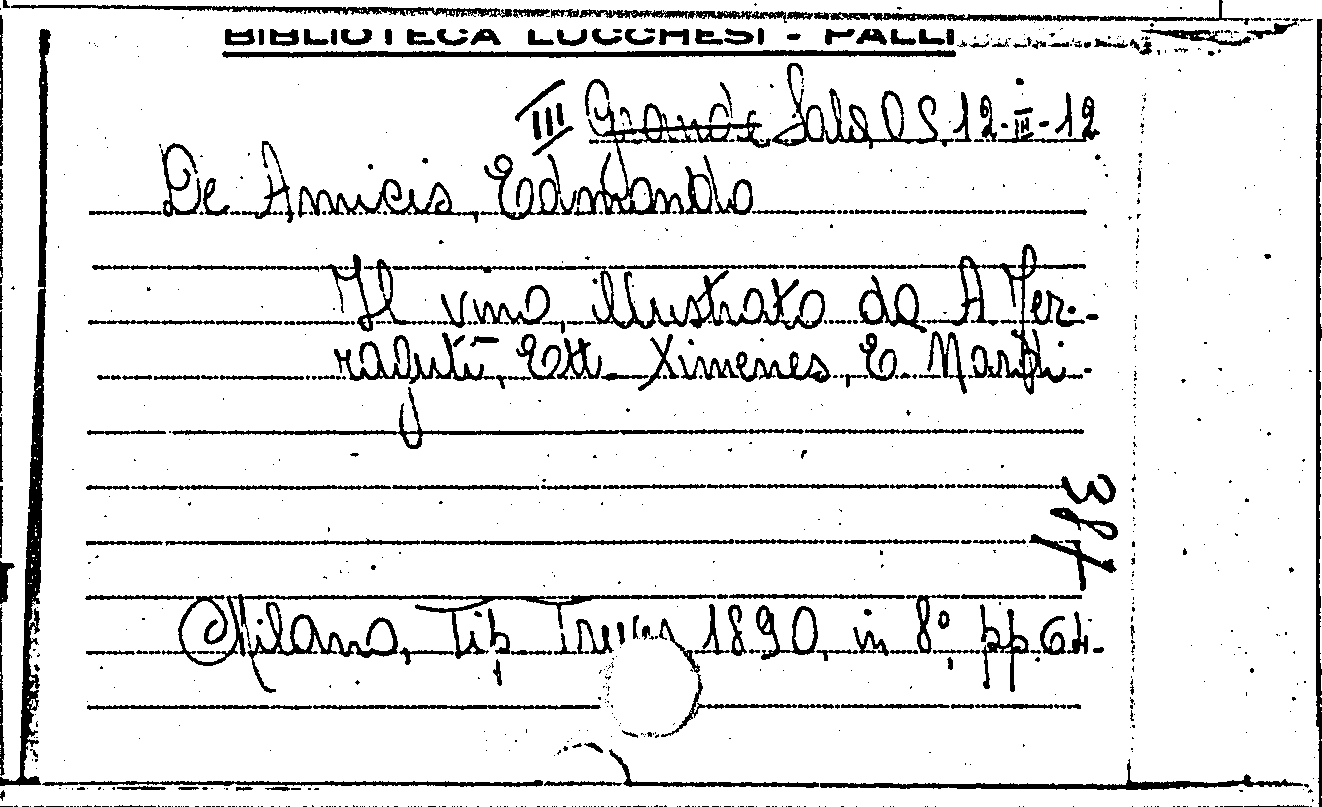 BIBLIOTECA LUCCHESI - PALLI
III Grande Sala, O S. 12-III-12
De Amicis, Edmondo
Il vino, illustrato da A Fer-
raguti, Ett. Ximenes, E. Nardi.
483
Milano, Tip. Treves, 1890, in 8°, pp. 64.